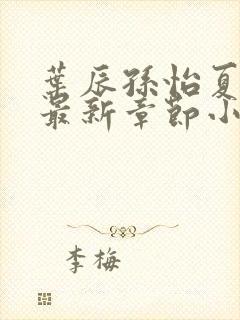 葉辰孫怡夏
最新章節小
李梅